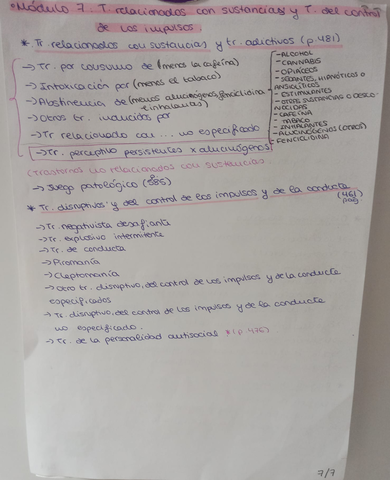 *Módulo 7. T. relacionados con sustancias y T. del control
de los impulsos
* Tr. relacionados con sustancias y tr. adictivos (p.481)
→ Tr. por consumo de (menos la cafeína)
→ Intoxicación por (menos el tabaco)
→ Abstinencia de (menos alucinógenos, fenciclidina
e inhalantes)
→ Otros tr. inducidos por
→ Tr relacionado con ... no especificado
→ Tr. perceptivo persistentes x alucinógenos
- ALCOHOL
- CANNABIS
- OPIÁCEOS
- SEDANTES, HIPNÓTICOS O
ANSIOLÍTICOS
- ESTIMULANTES
- OTRAS SUSTANCIAS O DESCO-
NOCIDAS
- CAFEÍNA
- TABACO
- INHALANTES
- ALUCINÓGENOS (OTROS)
- FENCICLIDINA
(Trastornos no relacionados con sustancias
→ Juego patológico (585)
* Tr. disruptivos y del control de los impulsos y de la conducta
(461)
pag
→ Tr. negativista desafiante
→ Tr. explosivo intermitente
→ Tr. de conducta
→ Piromanía
→ Cleptomanía
→ Otro tr. disruptivo, del control de los impulsos y de la conducta
especificados
→ Tr. disruptivo, del control de los impulsos y de la conducta
no especificado.
→ Tr. de la personalidad antisocial * (p.476)
7/7